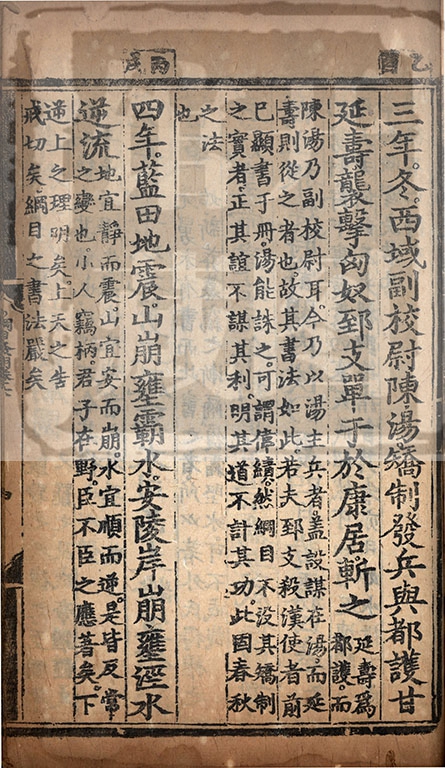 乙酉
三年。冬。西域副校尉陳湯矯制發兵與都護甘
延壽襲擊匈奴郅支單于於康居。斬之
延壽爲
都護。而
陳湯乃副校尉耳。今乃以湯主兵者。盖設謀在湯。而延
壽則從之者也。故其書法如此。若夫郅支殺漢使者前
已顯書于冊。湯能誅之。可謂偉績。然綱目不没其矯制
之實者。正其誼不謀其利。明其道不計其功。此固春秋
之法
也
丙戌
四年。藍田地震。山崩壅霸水。安陵岸崩壅涇水
逆流
地宜靜而震。山宜安而崩。水宜順而逆。是皆反常
之變也。小人竊柄。君子在野。臣不臣之應著矣。下
逆上之理明矣。上天之告
戒切矣。綱目之書法嚴矣